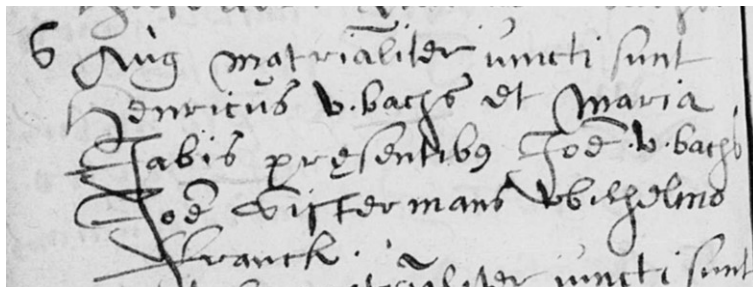 6 Aug matrialiter iuncti sunt
Henricus v. bachs et Maria
Jabis presentibus Joe v. bachs
Joe Vistermans Wilhelmo
Franck.
matrialiter iuncti sunt